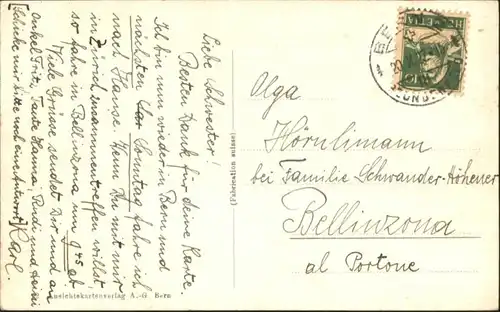 Liebe Schwester!
Besten Dank für deine Karte.
Ich bin nun wieder in Bern und
nächsten Sonntag fahre ich
nach Hause. Wenn Du mit mir
in Zürich zusammentreffen willst,
so fahre in Bellinzona um 9 45 ab.
Viele Grüsse sendet Dir und an
onkel Fritz, Tante Hanna, Rudi und Heini
Karl.
[Schicke mir bitte noch eine Antwort]
Ansichtskartenverlag A.-G. Bern
(Fabrication suisse)
HELVETIA
10
Olga
Hörnlimann
bei Familie Schwander-Höhener
Bellinzona
al Portone